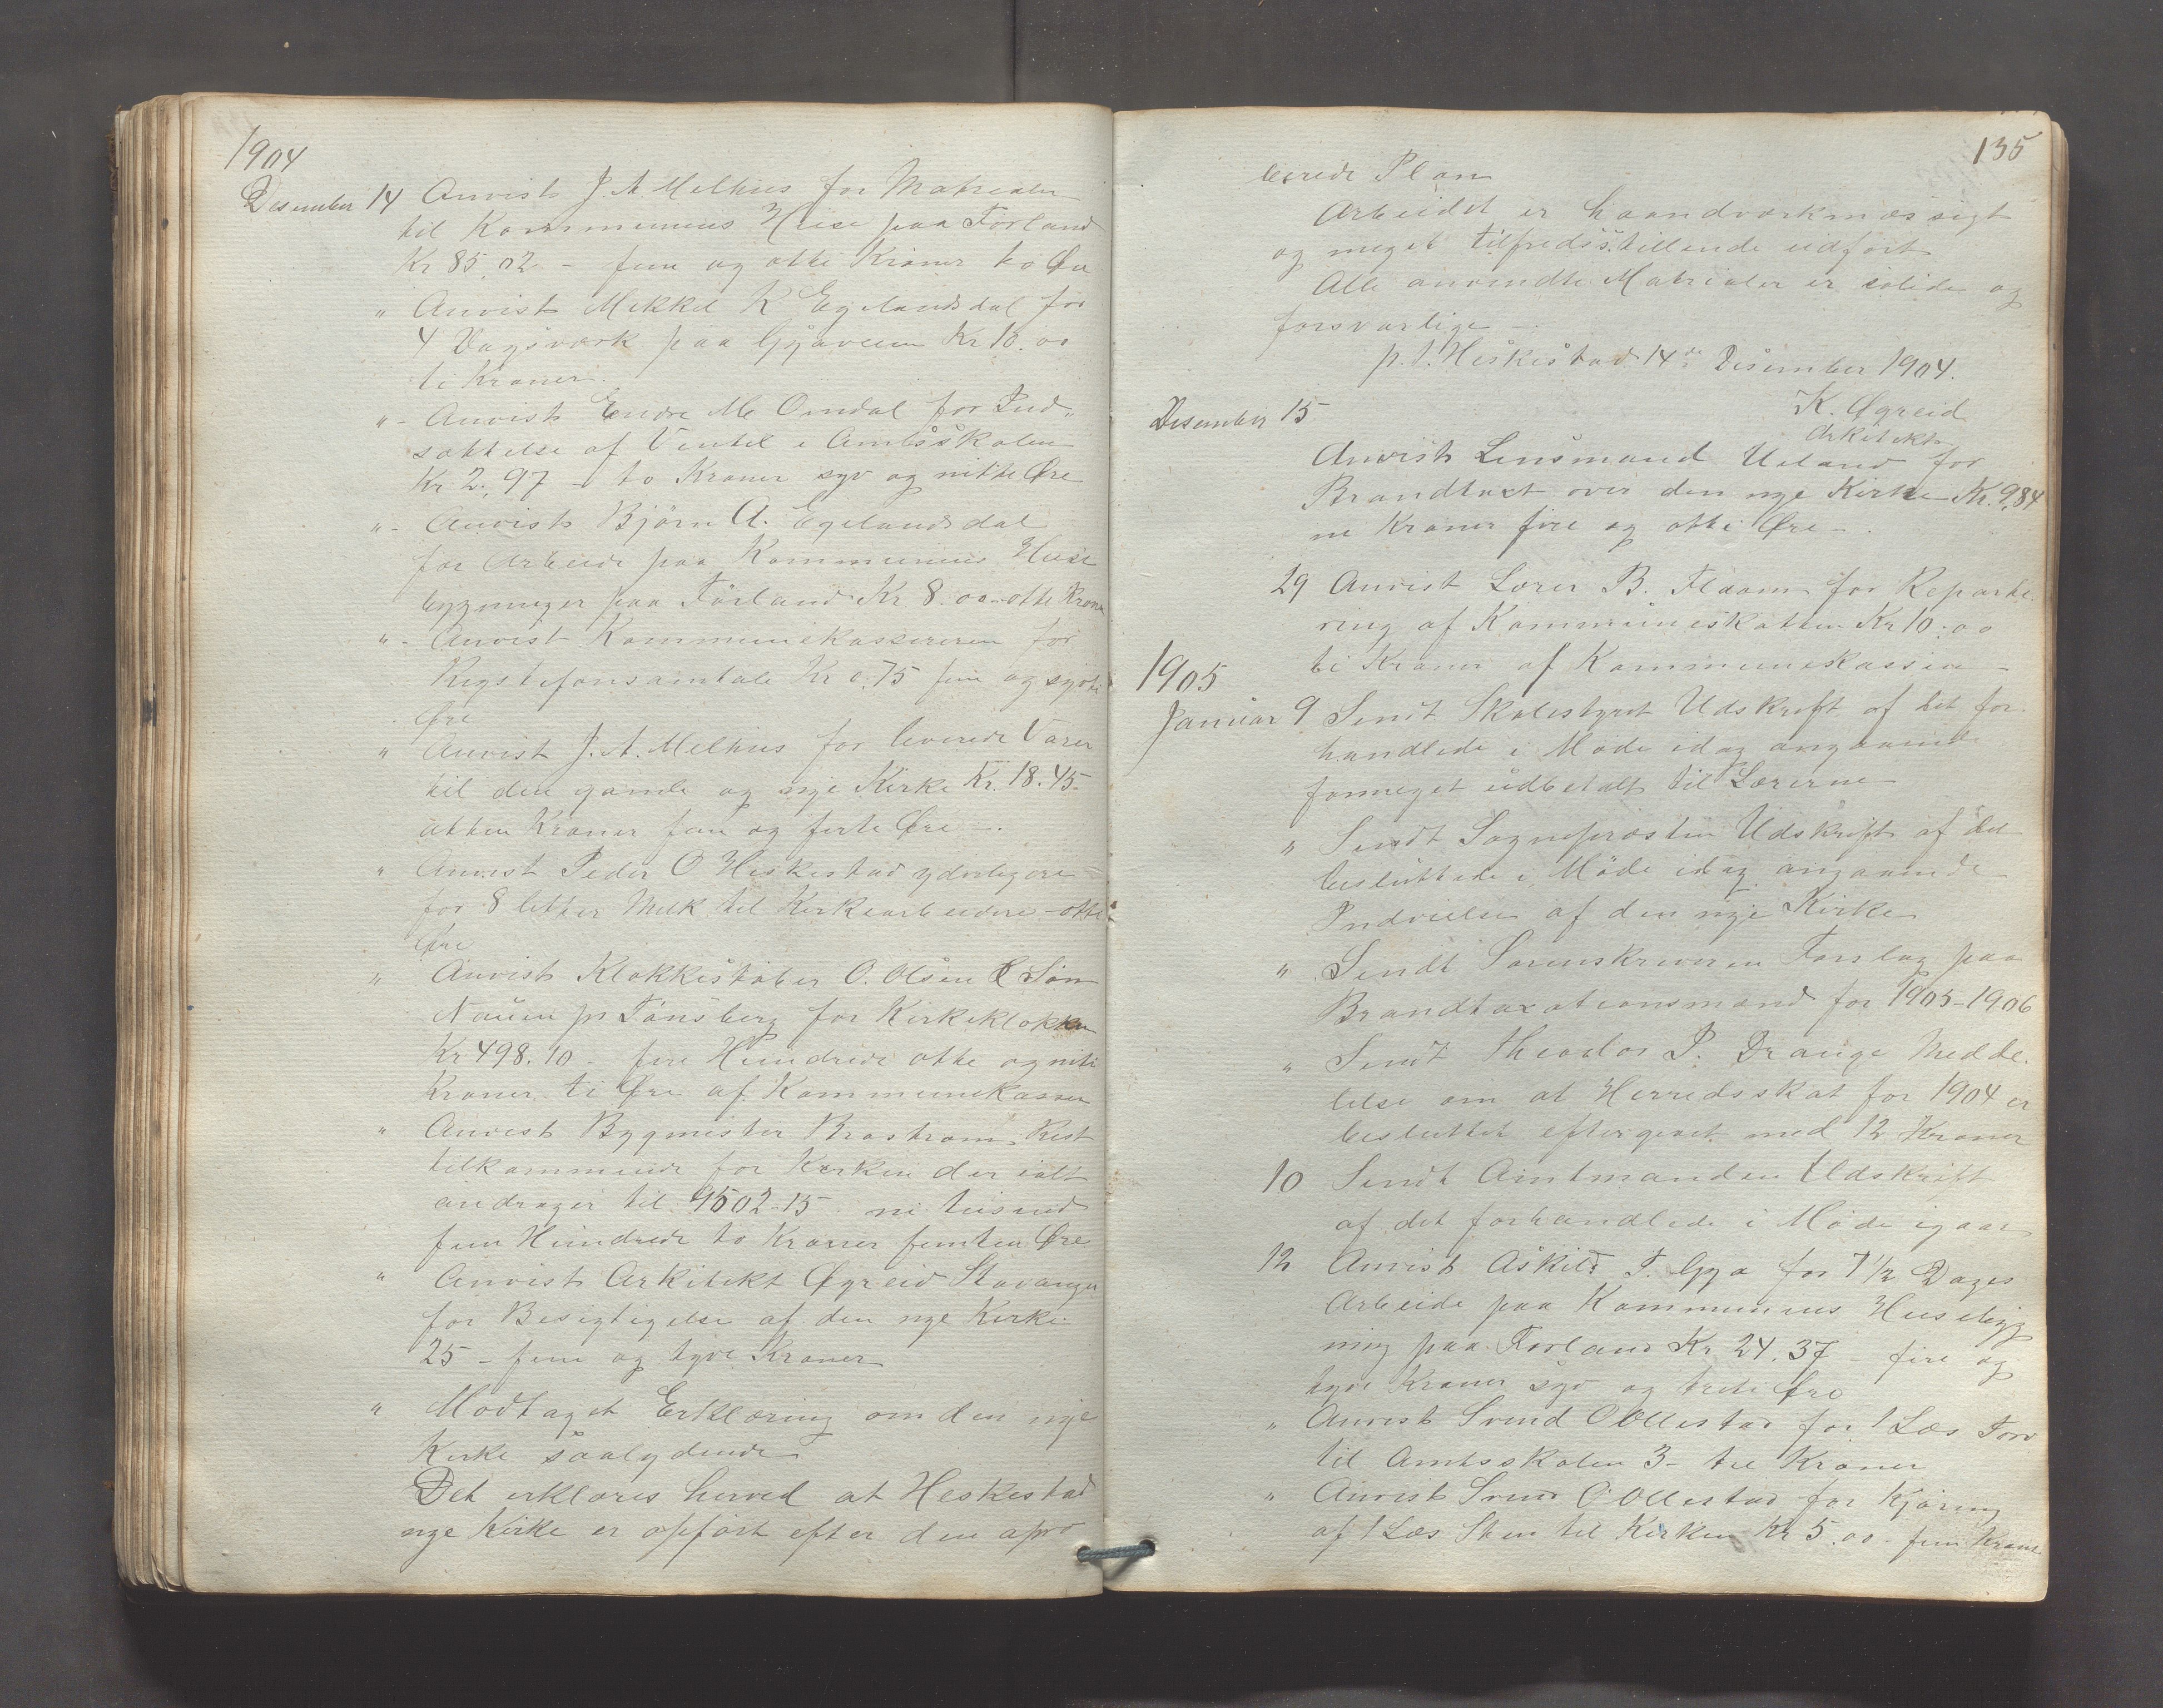 1904
Desember 14 Anvist J. A Melhus for Matrealer
til Kommunens Huse paa Førland
Kr 85,02 - fem og otti Kroner to Øre
" Anvist Mikkel K Egelandsdal for
4 Dagsværk paa Gyaveien Kr 10.00
ti Kroner.
"- Anvist Endre M. Omdal for Ind-
sættelse af Ventil i Amtsskolen
Kr 2,97 - to Kroner syv og nitti Øre
"- Anvist Bjørn A. Egelandsdal
for Arbeide paa Kommunens Huse
bygninger paa Førland Kr 8.00 - otte Kroner
"- Anvist Kommunekassereren for
Rigstefonsamtale Kr 0,75 fem og sytti
Øre
" Anvist J. A. Melhus for leverede Varer
til den gamle og nye Kirke Kr. 18.45-
atten Kroner fem og førti Øre -.
" Anvist Peder O Heskestad yderligere
for 8 litter Melk til Kirkearbeidere - otte
Øre
" Anvist Klokkestøber O. Olsen & Søn
Nauen pr Tønsberg for Kirkeklokken
Kr 498.10 - fire Hundrede otte og nitti
Kroner ti Øre af Kommunekassen
" Anvist Bygmester Brostrøm Rest
tilkommende for Kirken der ialt
andrager til 9502-15 ni tusind
fem Hundrede to Kroner femten Øre
" Anvist Arkitekt Øgreid Stavanger
for Besigtigelse af den nye Kirke
25 - fem og tyve Kroner
" Modtaget Erklæring om den nye
Kirke saalydende
Det erklæres herved at Heskestad
nye Kirke er opført efter den apro
135
berede Plan
Arbeidet er haandværkmæssigt
og meget tilfredsstillende udført
Alle anvendte Matrialer er solide og
forsvarlige -.
p. t. Heskestad 14de Desember 1904.
K. Øgreid
Arkitekt
Desember 15
Anvist Lensmand Ueland for
Brandtaxt over den nye Kirke Kr. 9,84
ni Kroner fire og otti Øre -.
29 Anvist Lærer B. Fldom for Reparte-
ring af Kommuneskatten Kr 10.00
ti Kroner af Kommunekassen -
1905
Januar 9 Sendt Skolestyret Udskrift af det for-
handlede i Møde idag angaaende
formeget udbetalt til Lærerne
" Sendt Sognepræsten Udskrift af det
besluttede i Møde idag angaaende
Indvielse af den nye Kirke
" Sendt Sorenskriveren Forslag paa
Brandtaxationsmænd for 1905-1906
" Sendt Theodor P. Drange Medde-
lelse om at Herredsskat for 1904 er
besluttet eftergivet med 12 Kroner
10 Sendt Amtmanden Udskrift
af det forhandlede i Møde igaar
12 Anvist Askild T. Gya for 7 1/2 Dages
Arbeide paa Kommunens Husebygg
ning paa Førland Kr 24,37 - fire og
tyve Kroner syv og tretti Øre
" Anvist Svend O Ollestad for 1 Læs Torv
til Amtsskolen 3 - tre Kroner
" Anvist Svend O Ollestad for Kjøring
af 1 Læs Sten til Kirken Kr 5.00 - fem Kroner